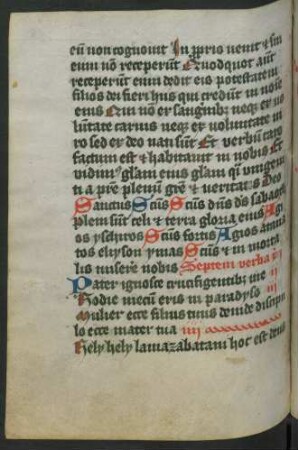 eū non cognouit In ꝓpris venit & sui
eum nō receperūt Quodquot aūt
receperūt eum dedit eis potestatem
filios dei fieri hiis qui credūt in noīe
eius Qui nō ex sanguībꝫ neqꝫ ex uo
lūtate carnis neqꝫ ex voluntate ui
ro sed ex deo nati sunt Et verbū caro
factum est & habitauit in nobis Et
vidimꝰ glam eius glam qͣ̄ vnigeni
ti a pr̄e plenū gr̄e & veritatis Deo
Sanctus Sc̄us Sc̄us dn̄s dꝰ sabaoth
pleni sunt celi & terra gloria eius Agi
os yschiros Sc̄us fortis Agios athana
tos eleyson ymas Sc̄us & in morta
lis miserere nobis Septem verba xpi
Pater ignosce crucifigentibꝫ me ii
Hodie mecū eris in paradyso iii
Mulier ecce filius tuus deinde discipu
lo ecce mater tua iiii
Hely hely lamazabatani hoc est deus